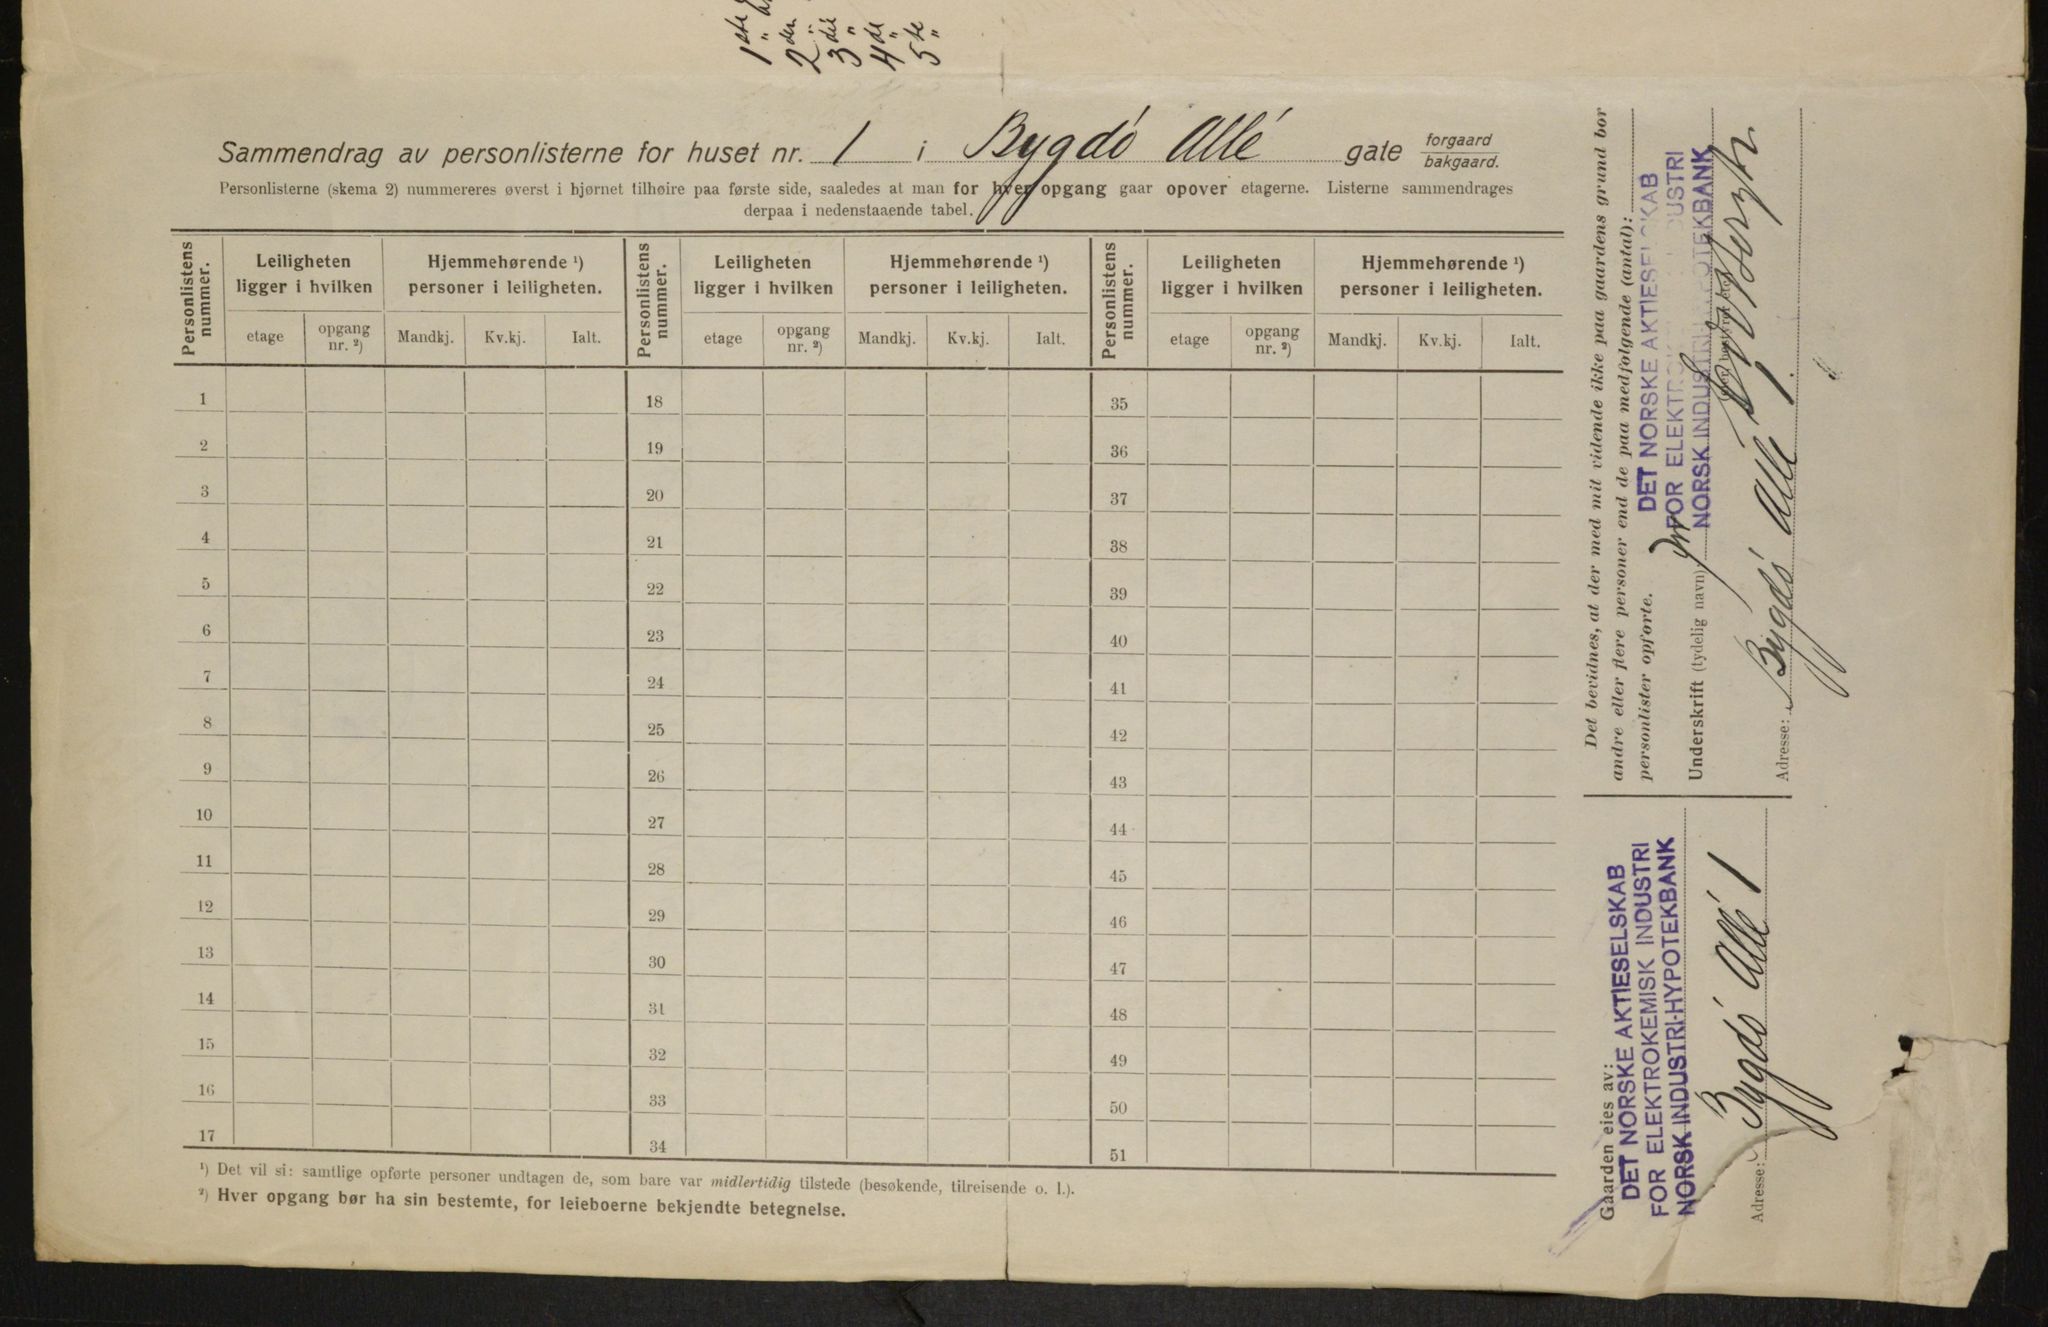 1ste "
2den "
3die "
4de "
5te "
Sammendrag av personlisterne for huset nr. 1 i Bygdö Allé gate forgaard bakgaard.
Personlisterne (skema 2) nummereres øverst i hjørnet tilhøire paa første side, saaledes at man for hver opgang gaar opover etagerne. Listerne sammendrages
derpaa i nedenstaaende tabel.
Personlistens nummer. Leiligheten ligger i hvilken Hjemmehørende ¹) personer i leiligheten. Personlistens nummer. Leiligheten ligger i hvilken Hjemmehørende ¹) personer i leiligheten. Personlistens nummer. Leiligheten ligger i hvilken Hjemmehørende ¹) personer i leiligheten.
etage opgang nr. ²) Mandkj. Kv.kj. Ialt. etage opgang nr. ²) Mandkj. Kv.kj. Ialt. etage opgang nr. ²) Mandkj. Kv.kj. Ialt.
1 18 35
2 19 36
3 20 37
4 21 38
5 22 39
6 23 40
7 24 41
8 25 42
9 26 43
10 27 44
11 28 45
12 29 46
13 30 47
14 31 48
15 32 49
16 33 50
17 34 51
¹) Det vil si: samtlige opførte personer undtagen de, som bare var midlertidig tilstede (besøkende, tilreisende o. l.).
²) Hver opgang bør ha sin bestemte, for leieboerne bekjendte betegnelse.
Det bevidnes, at der med mit vidende ikke paa gaardens grund bor
andre eller flere personer end de paa medfølgende (antal):
personlister opførte.
DET NORSKE AKTIESELSKAB
FOR ELEKTROKEMISK INDUSTRI
NORSK INDUSTRI-HYPOTEKBANK
Underskrift (tydelig navn):
(eier, bestyrer etc.)
Adresse: Bygdö Allé 1.
Gaarden eies av:
DET NORSKE AKTIESELSKAB
FOR ELEKTROKEMISK INDUSTRI
NORSK INDUSTRI-HYPOTEKBANK
Adresse: Bygdö Allé 1